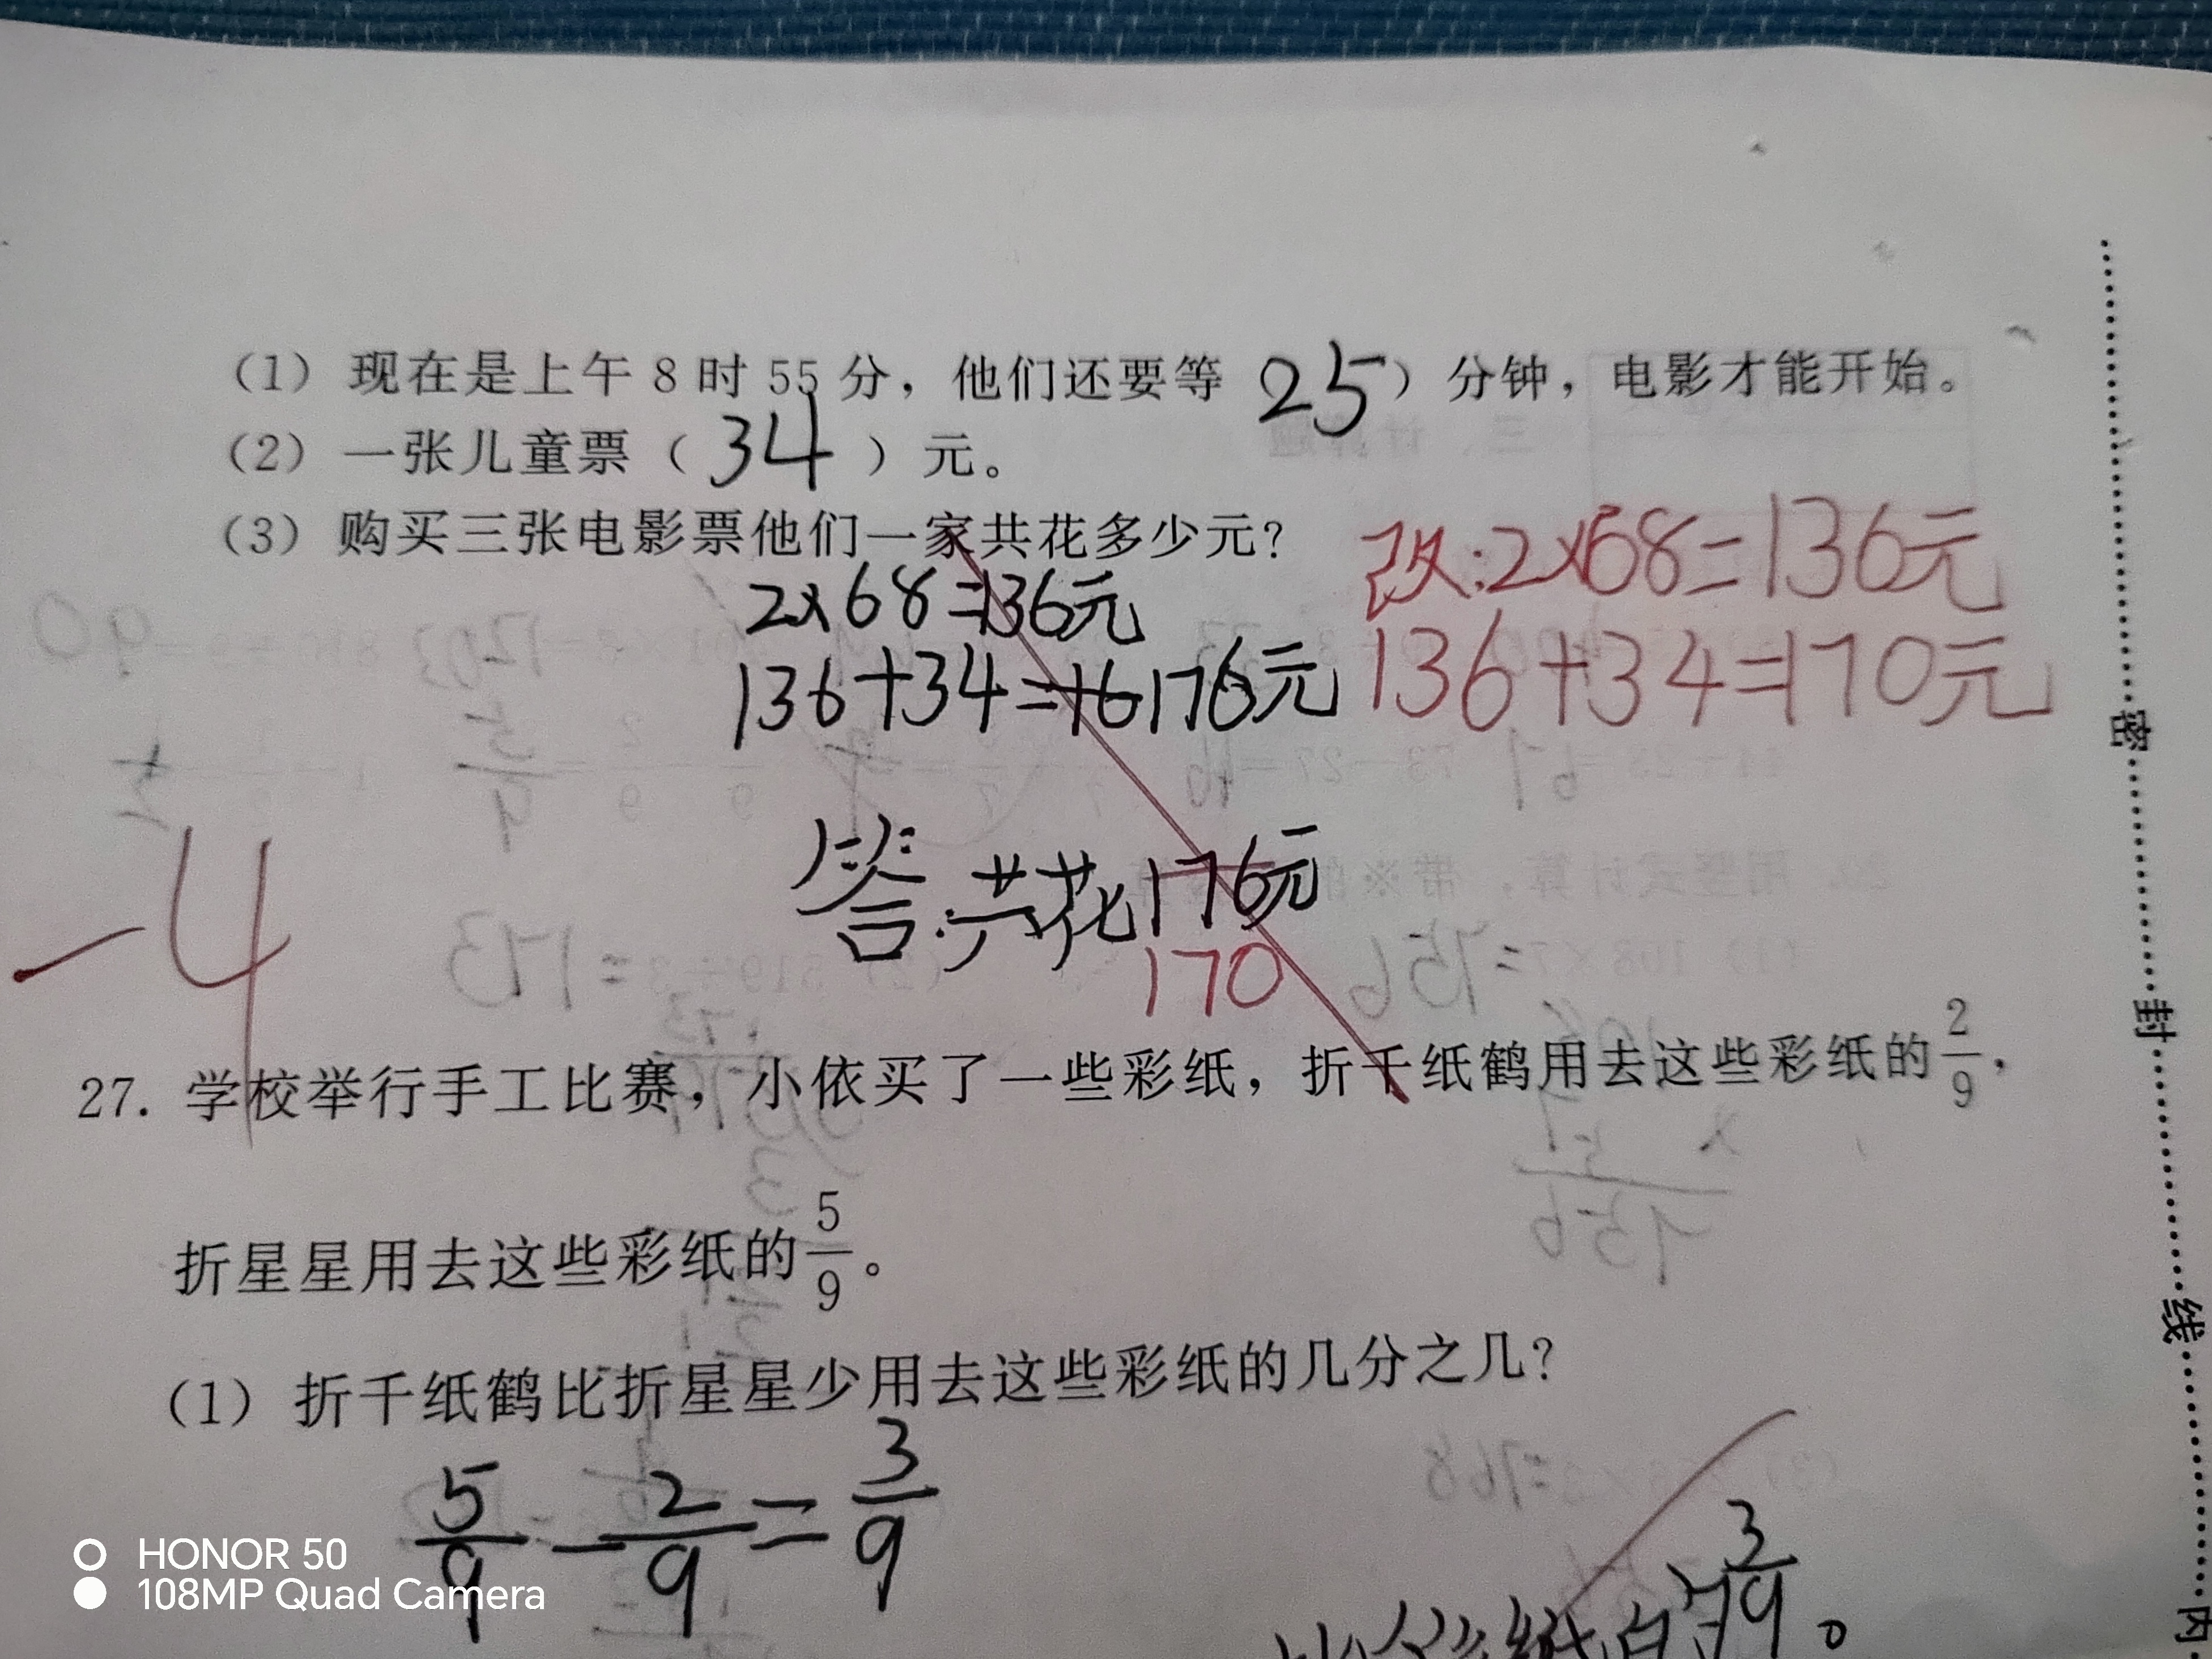 (1) 现在是上午 8 时 55 分，他们还要等 25）分钟，电影才能开始。
(2) 一张儿童票（34）元。
(3) 购买三张电影票他们一家共花多少元？
2×68=136元
136+34=16176元
改:2×68=136元
136+34=170元
答:共花176元
170
-4
27. 学校举行手工比赛，小依买了一些彩纸，折千纸鹤用去这些彩纸的2/9，
折星星用去这些彩纸的5/9。
(1) 折千纸鹤比折星星少用去这些彩纸的几分之几？
5/9-2/9=3/9
纸的3/9。
密
封
线
内
HONOR 50
108MP Quad Camera